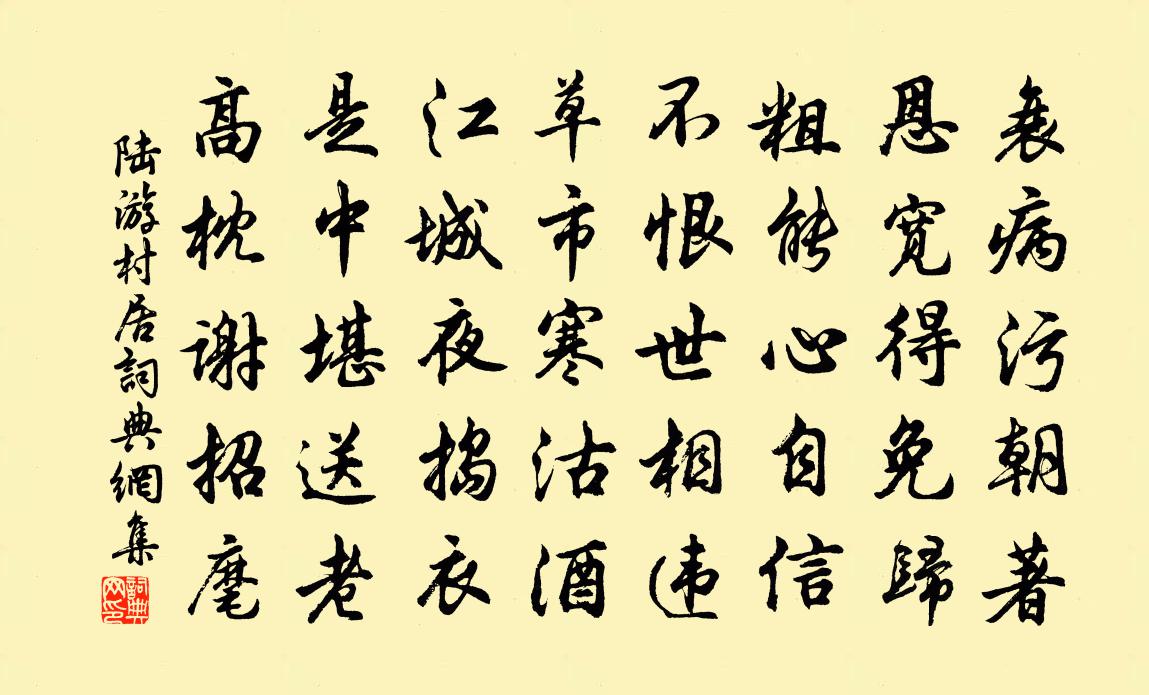 衰病污朝著
恩寬得免歸
粗能心自信
不恨世相违
草市寒沽酒
江城夜搗衣
是中堪送老
高枕謝招麾
陆游村居詞典網集
詞典网印